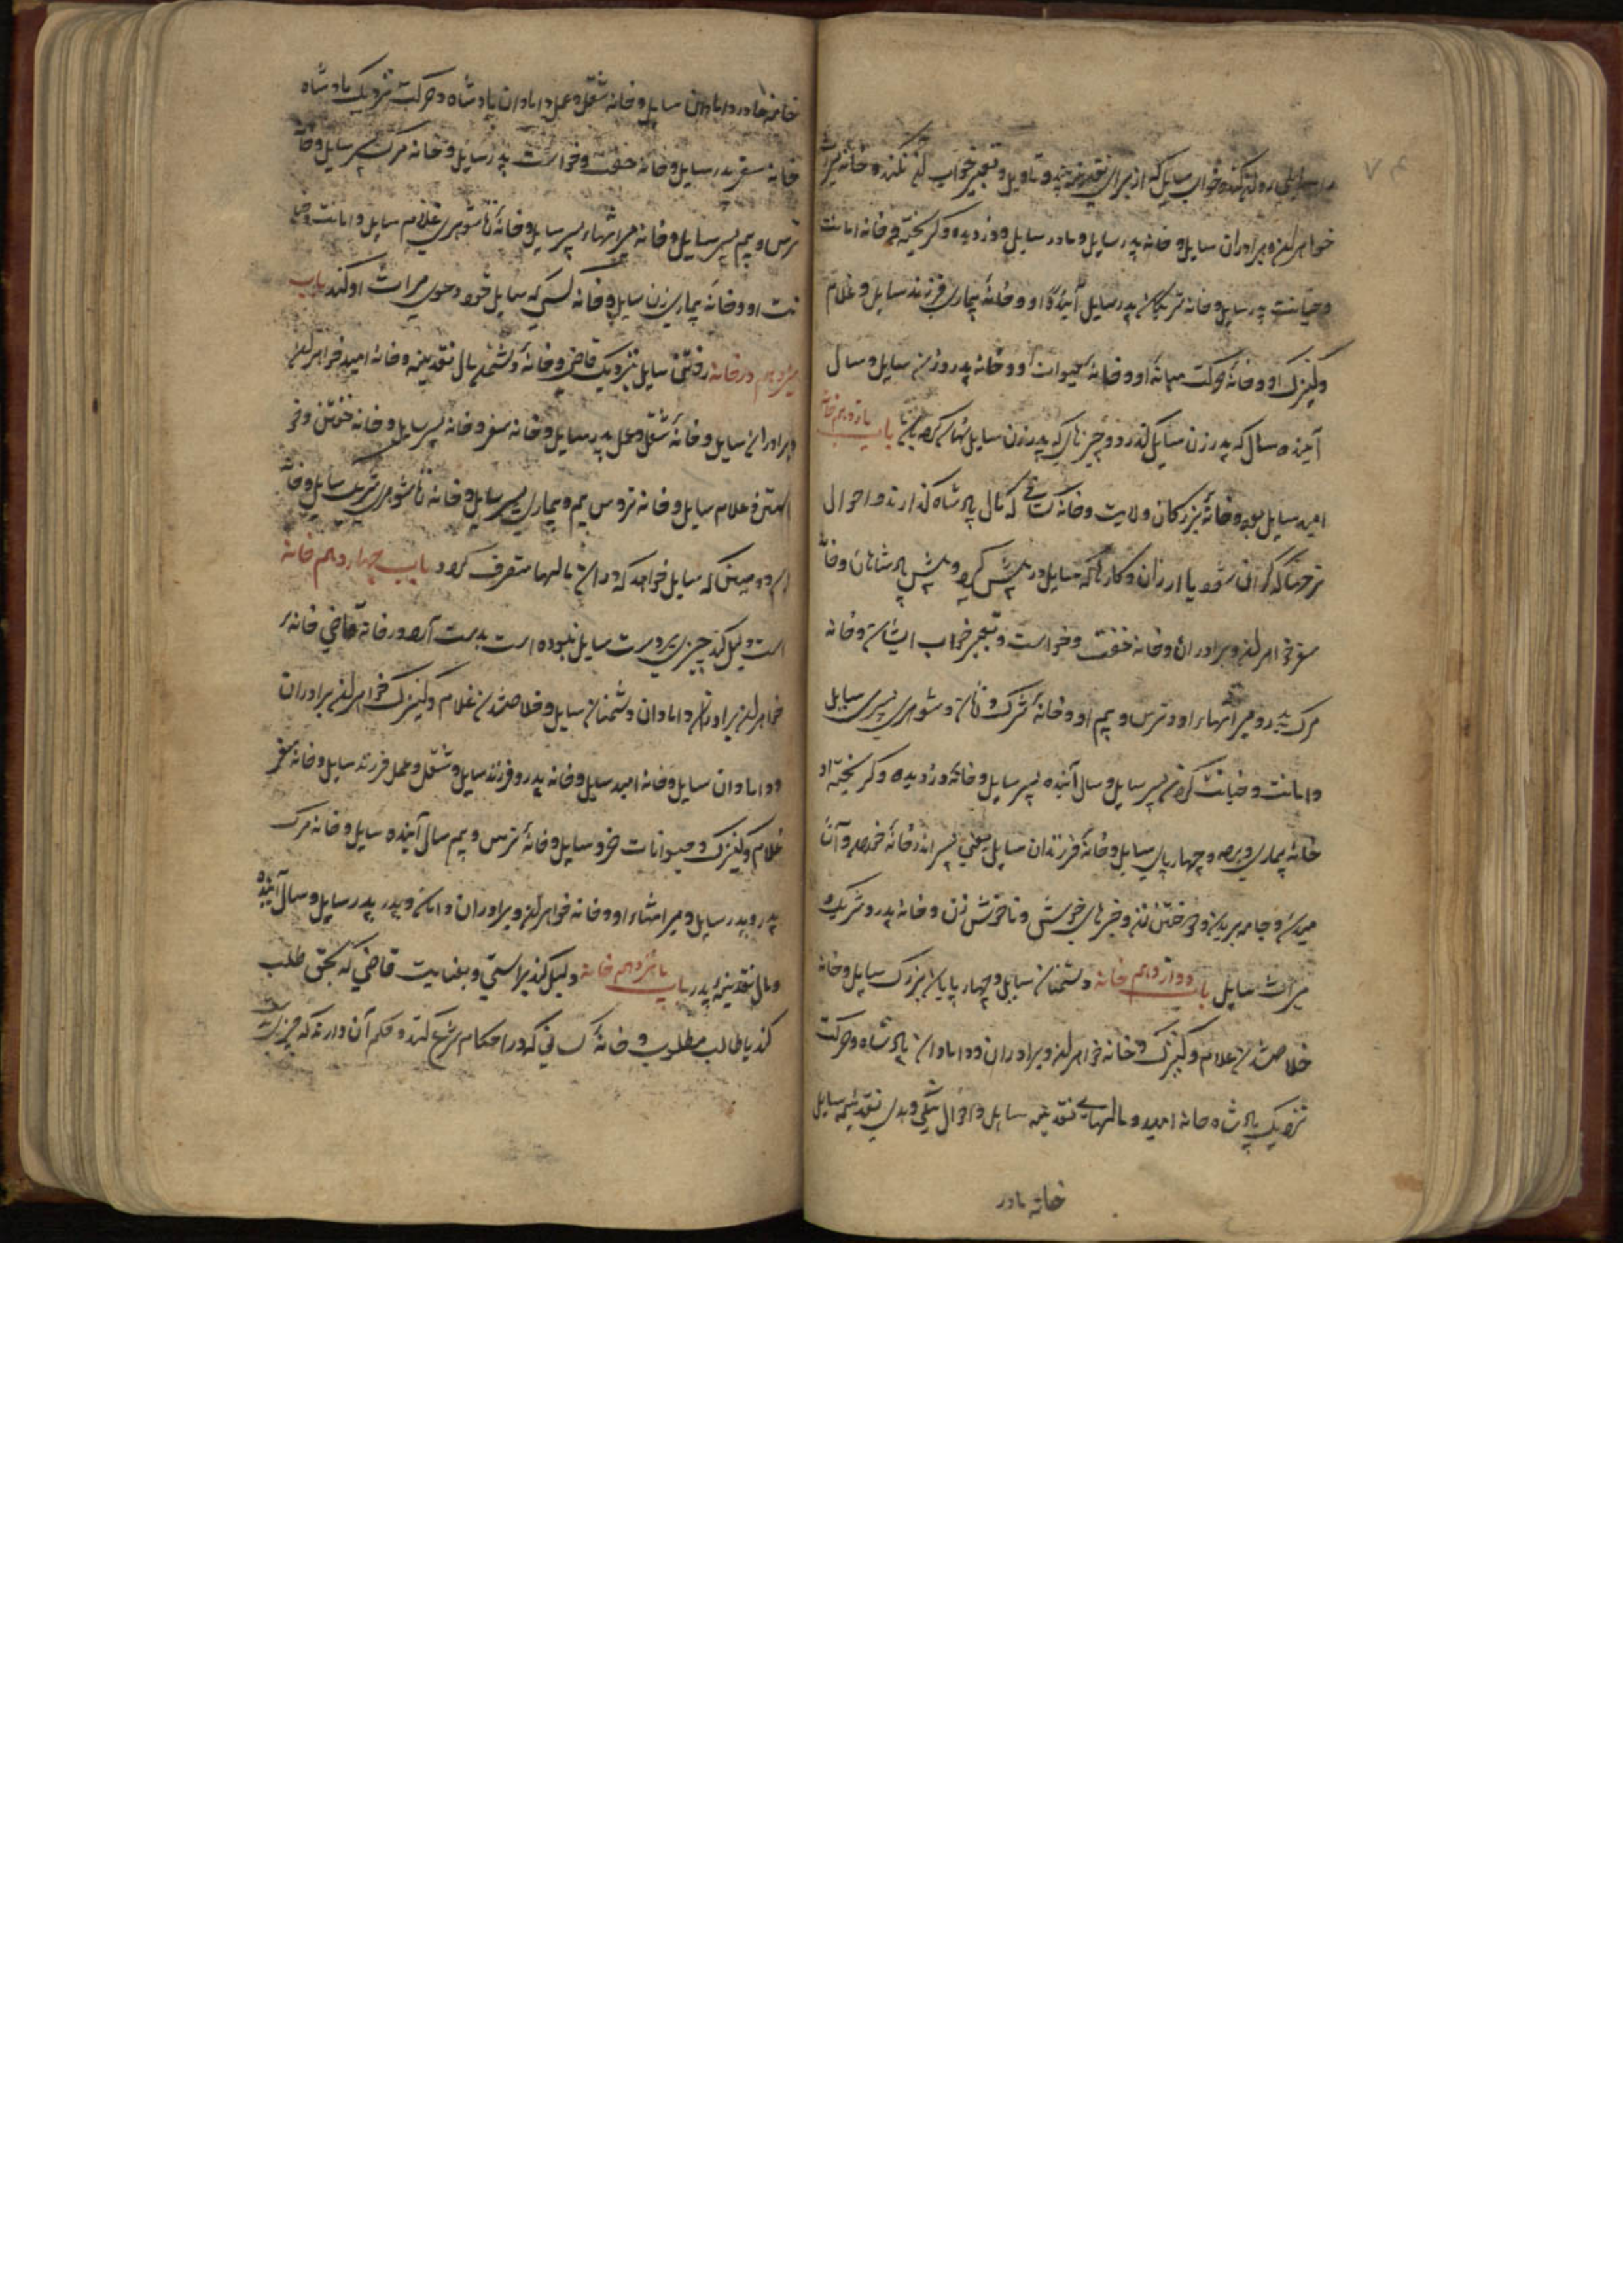 ۷۴
خواب سایل که از برای نقدینه بیند و تاویل و تعبیر خواب
خواهران و برادران سایل و خانه پدر سایل و مادر سایل و دزدیده و کریخته و خانه امانت
و خیانت پدر سایل و خانه پدر سایل آینده او و خانهٔ بیماری فرزند سایل و غلام
و کنیزک او و خانهٔ حرکت میانهٔ او و خانهٔ حیوات او و خانه پدر و زن سایل و سال
آینده سال که پدر زن سایل و چیزهای که پدر زن سایل باب یازدهم خانهٔ
امید سایل بود و خانهٔ بزرکان ولایت و خانه کسانی که مال پادشاه کذارند و احوال
نرخها که کران شود یا ارزان و کارها که سایل در پیش کیرد و پیش پادشاهان و خانهٔ
سفر خواهران و برادران و خانه خفت و خواست و تعبیر خواب ایشان و خانه
مرک پدر و میراثهاء او و ترس و بیم او و خانهٔ شرک و زن و شوهری پسری سایل
و امانت و خیانت کردن پسر سایل و سال آینده پسر سایل و خانه دزدیده و کریخته او
خانه بیماری و چهارپای سایل و خانهٔ فرزندان سایل یعنی پسر
و جامه بریدن و خبرهای خوش و ناخوش زن و خانه پدر و شریک و
میراث سایل باب دوازدهم خانه دشمنان سایل و چهارپایان بزرک سایل و خانه
خلاص شدن غلام و کنیزک و خانه خواهران و برادران و دامادان پادشاه و حرکت
نزدیک پادشاه خانه امید و مالهای نقدینه سایل و احوال نیکی و بدی نقدینه سایل
خانه مادر
خانه مادر و دامادان سایل و خانه شغل و عمل دامادان پادشاه و حرکت نزدیک پادشاه
خانه سفر پدر سایل و خانه خفت و خواست پدر سایل و خانه مرک پسر سایل و خانهٔ
ترس و بیم پسر سایل و خانه میراثهاء پسر سایل و خانهٔ زناشوهری غلام سایل و امانت و خیا
نت او و خانهٔ بیماری زن سایل و خانه کسی که سایل خود دعوی میراث او کند باب
سیزدهم در خانهٔ رفتن سایل نزدیک قاضی و خانهٔ دشمن مال نقدینه و خانهٔ امید خواهران
و برادران سایل و خانهٔ شغل و عمل پدر سایل و خانه سفر و خانه پسر سایل و خانه خفتن و خو
استن غلام سایل و خانه ترس بیم و بیماری پسر سایل و خانه زناشوهری شریک سایل و خانهٔ
که سایل خواهد که در آن مالها متصرف کردد باب چهاردهم خانهٔ
است دلیل کند چیزی بدست سایل نبوده است بدست آید و خانه قاضی خانه
خواهران برادران دامادان دشمنان سایل و خلاص شدن غلام و کنیزک خواهران برادران
و دامادان سایل و خانه امید سایل و خانه پدر و فرزند سایل و شغل و عمل فرزند سایل و خانهٔ سفر
غلام و کنیزک و حیوانات خرد سایل و خانهٔ ترس و بیم سال آینده سایل و خانه مرک
پدر پدر سایل و میراثهاء او و خانه خواهران و برادران و پدر پدر سایل و سال آینده
و مال نقدینهٔ پدر باب پانزدهم خانه دلیل کند براستی و بغنایت قاضی که بحق طلب
کند یا طالب مطلوب و خانهٔ کسانی که در احکام شرع کنند و حکم آن دارند که